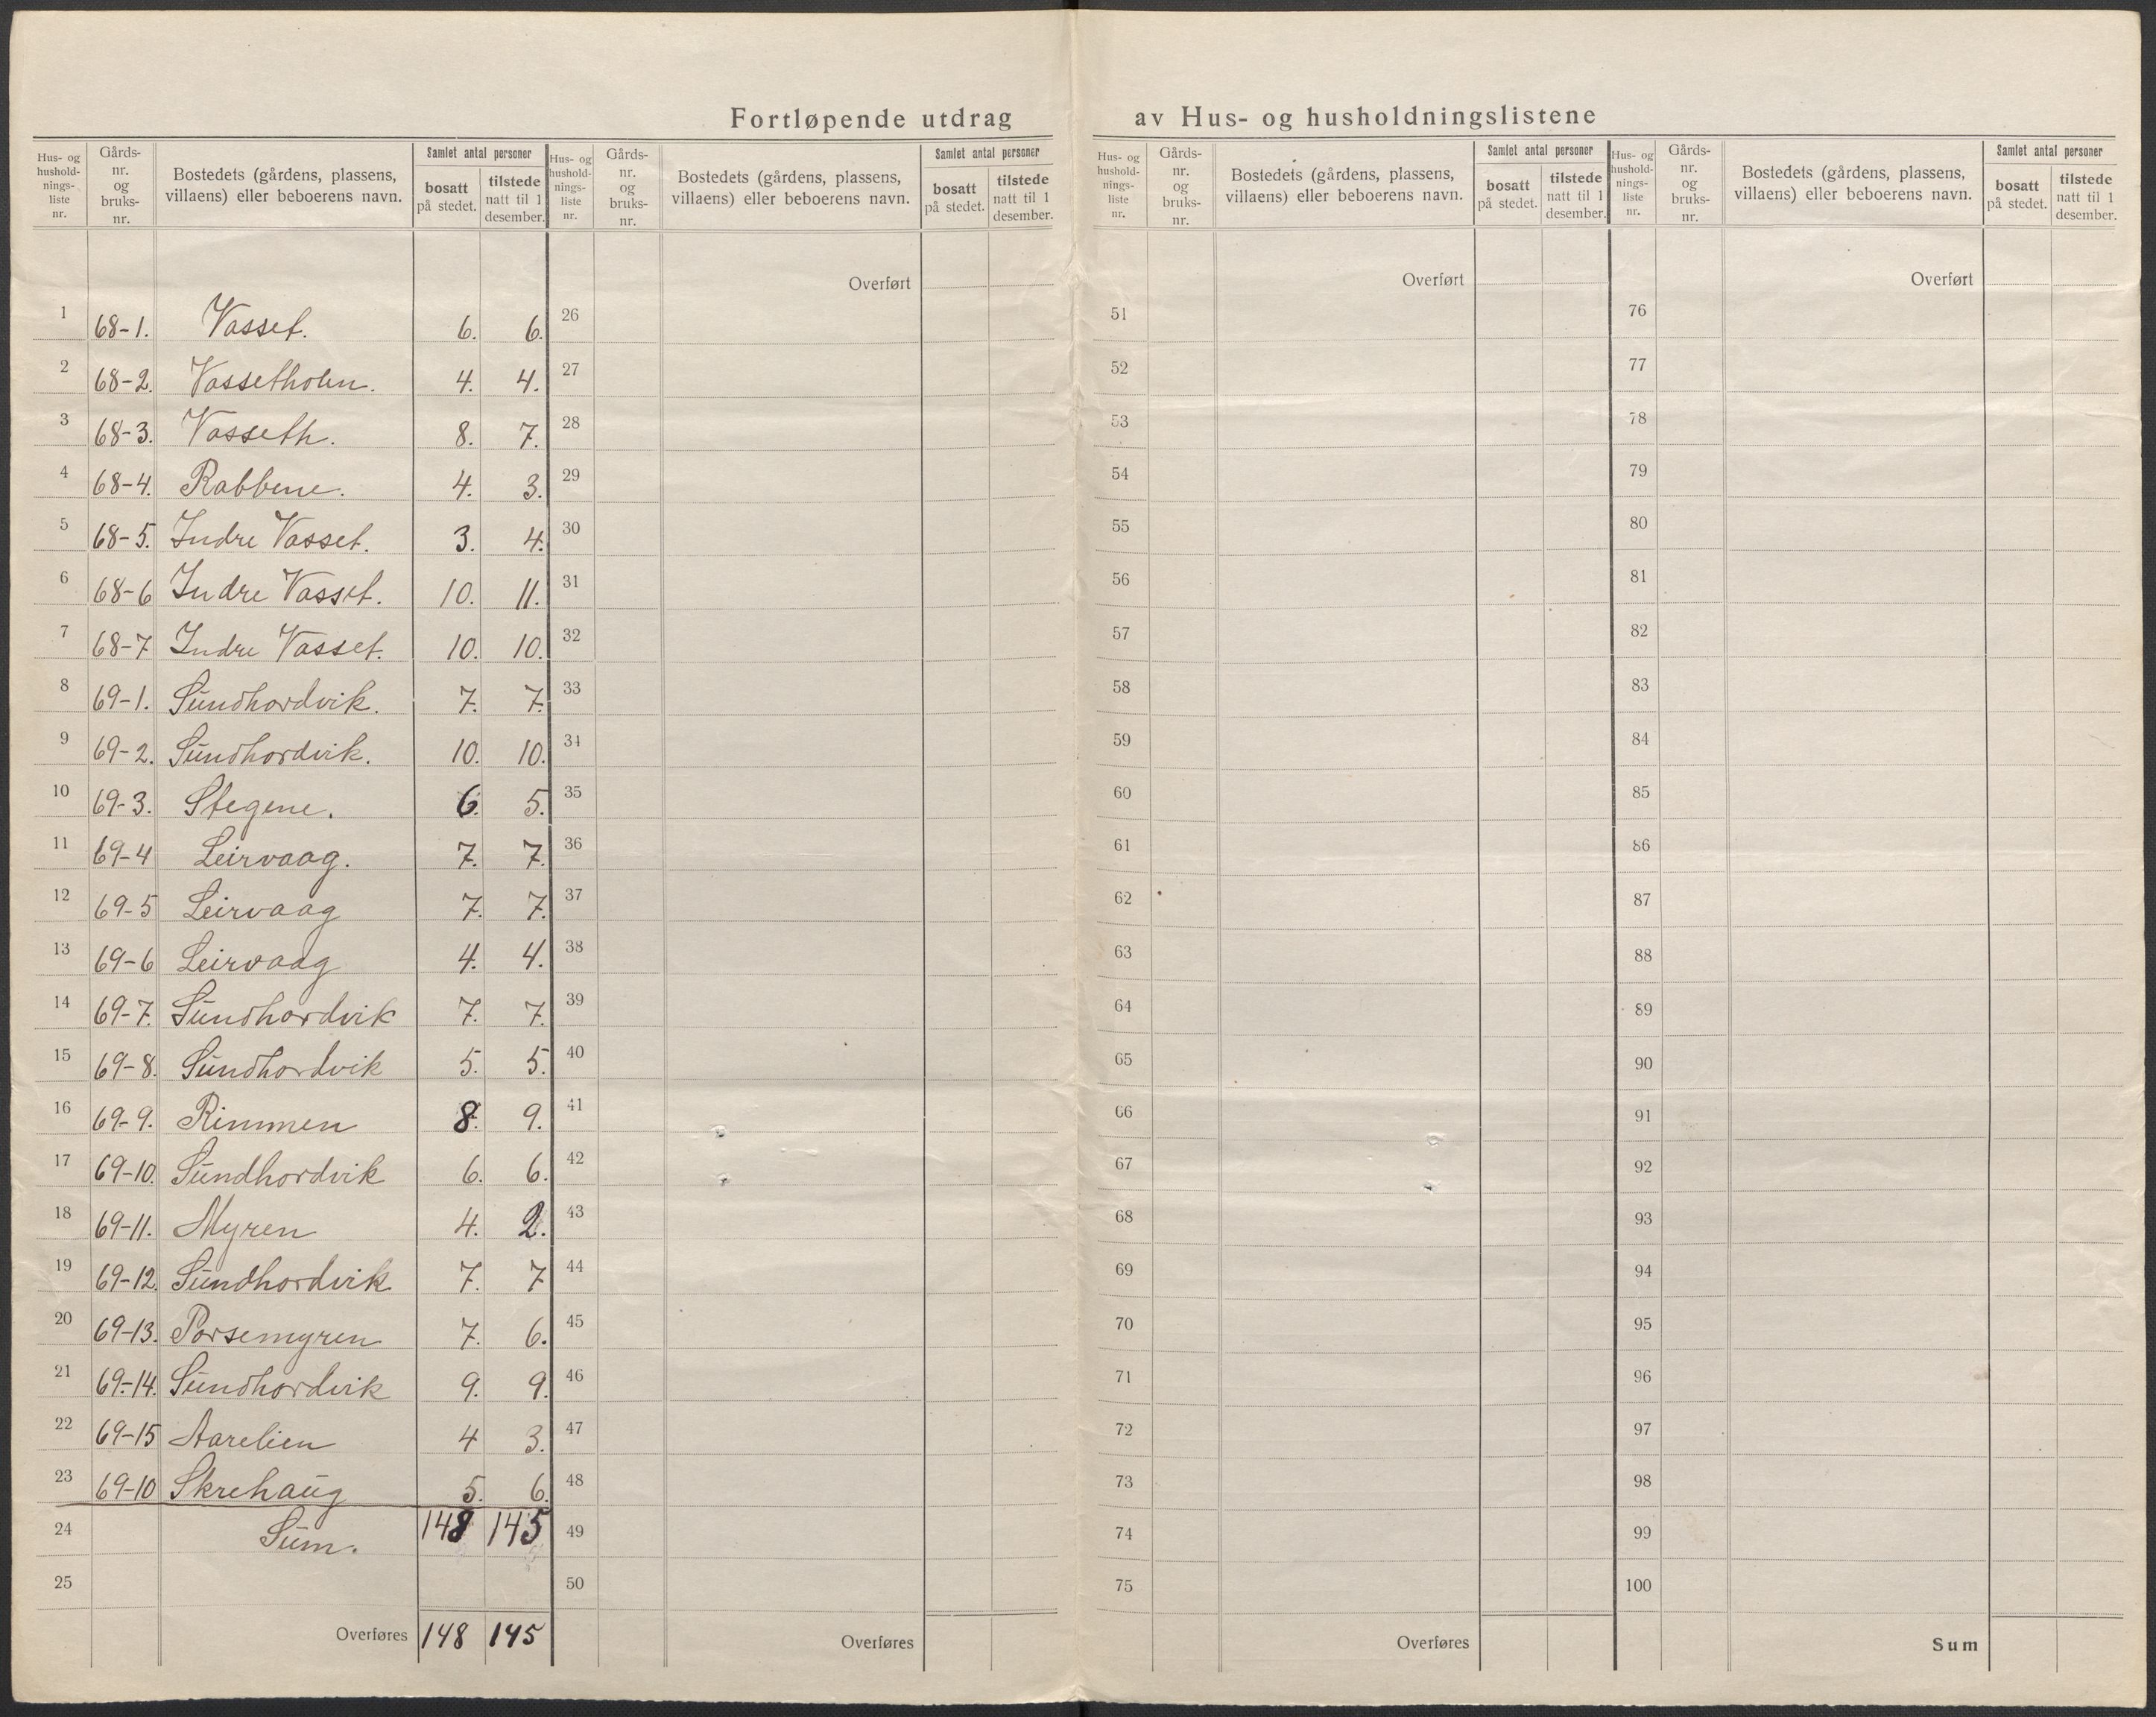 Fortløpende utdrag av Hus- og husholdningslistene
Hus- og hushold- nings- liste nr. Gårds- nr. og bruks- nr. Bostedets (gårdens, plassens, villaens) eller beboerens navn. Samlet antal personer bosatt på stedet. tilstede natt til 1 desember.
1 68-1. Vasset. 6. 6.
2 68-2. Vassetholen. 4. 4.
3 68-3. Vasseth. 8. 7.
4 68-4. Rabbene. 4. 3.
5 68-5. Indre Vasset. 3. 4.
6 68-6 Indre Vasset. 10. 11.
7 68-7 Indre Vasset. 10. 10.
8 69-1. Sundhordvik. 7. 7.
9 69-2. Sundhordvik. 10. 10.
10 69-3. Stegene. 6. 5.
11 69-4 Leirvaag. 7. 7.
12 69-5 Leirvaag 7. 7.
13 69-6 Leirvaag 4. 4.
14 69-7. Sundhordvik 7. 7.
15 69-8. Sundhordvik 5. 5.
16 69-9. Rimmen 8. 9.
17 69-10. Sundhordvik 6. 6.
18 69-11. Myren 4. 2.
19 69-12. Sundhordvik 7. 7
20 69-13. Porsemyren 7. 6.
21 69-14. Sundhordvik 9. 9.
22 69-15 Aarelien 4 3.
23 69-10 Skrehaug 5. 6.
24 Sum. 148 145
25
Overføres 148 145
Hus- og hushold- nings- liste nr. Gårds- nr. og bruks- nr. Bostedets (gårdens, plassens, villaens) eller beboerens navn. Samlet antal personer bosatt på stedet. tilstede natt til 1 desember.
Overført
26
27
28
29
30
31
32
33
34
35
36
37
38
39
40
41
42
43
44
45
46
47
48
49
50
Overføres
Hus- og hushold- nings- liste nr. Gårds- nr. og bruks- nr. Bostedets (gårdens, plassens, villaens) eller beboerens navn. Samlet antal personer bosatt på stedet. tilstede natt til 1 desember.
Overført
51
52
53
54
55
56
57
58
59
60
61
62
63
64
65
66
67
68
69
70
71
72
73
74
75
Overføres
Hus- og hushold- nings- liste nr. Gårds- nr. og bruks- nr. Bostedets (gårdens, plassens, villaens) eller beboerens navn. Samlet antal personer bosatt på stedet. tilstede natt til 1 desember.
Overført
76
77
78
79
80
81
82
83
84
85
86
87
88
89
90
91
92
93
94
95
96
97
98
99
100
Sum